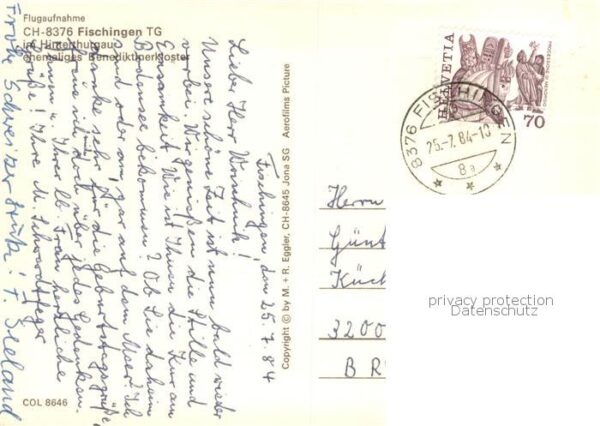 Flugaufnahme
CH-8376 Fischingen TG
im Hinterthurgau
ehemaliges Benediktinerkloster
Fischingen, den 25.7.84
Lieber Herr
Unsere schöne Zeit ist nun bald wieder
vorbei. Wir genießen die Stille und
Einsamkeit. Wie ist Ihnen die Kur am
Bodensee bekommen? Ob Sie daheim
sind oder am gar auf dem Meer? Ich
danke sehr für die Geburtstagsgrüße,
freue mich doch über jedes Gedenken.
Ihnen u. Ihrer lb. Frau herzliche
Grüße! Ihre M. Schwerdtfeger
Frohe Schweizer Grüße! F. Seeland
COL 8646
Copyright © by M. + R. Eggler, CH-8645 Jona SG Aerofilms Picture
HELVETIA
70
8376 FISCHINGEN
25.-7.84-10
8a
Herrn
Günt
Küch
3200
BR
privacy protection
Datenschutz